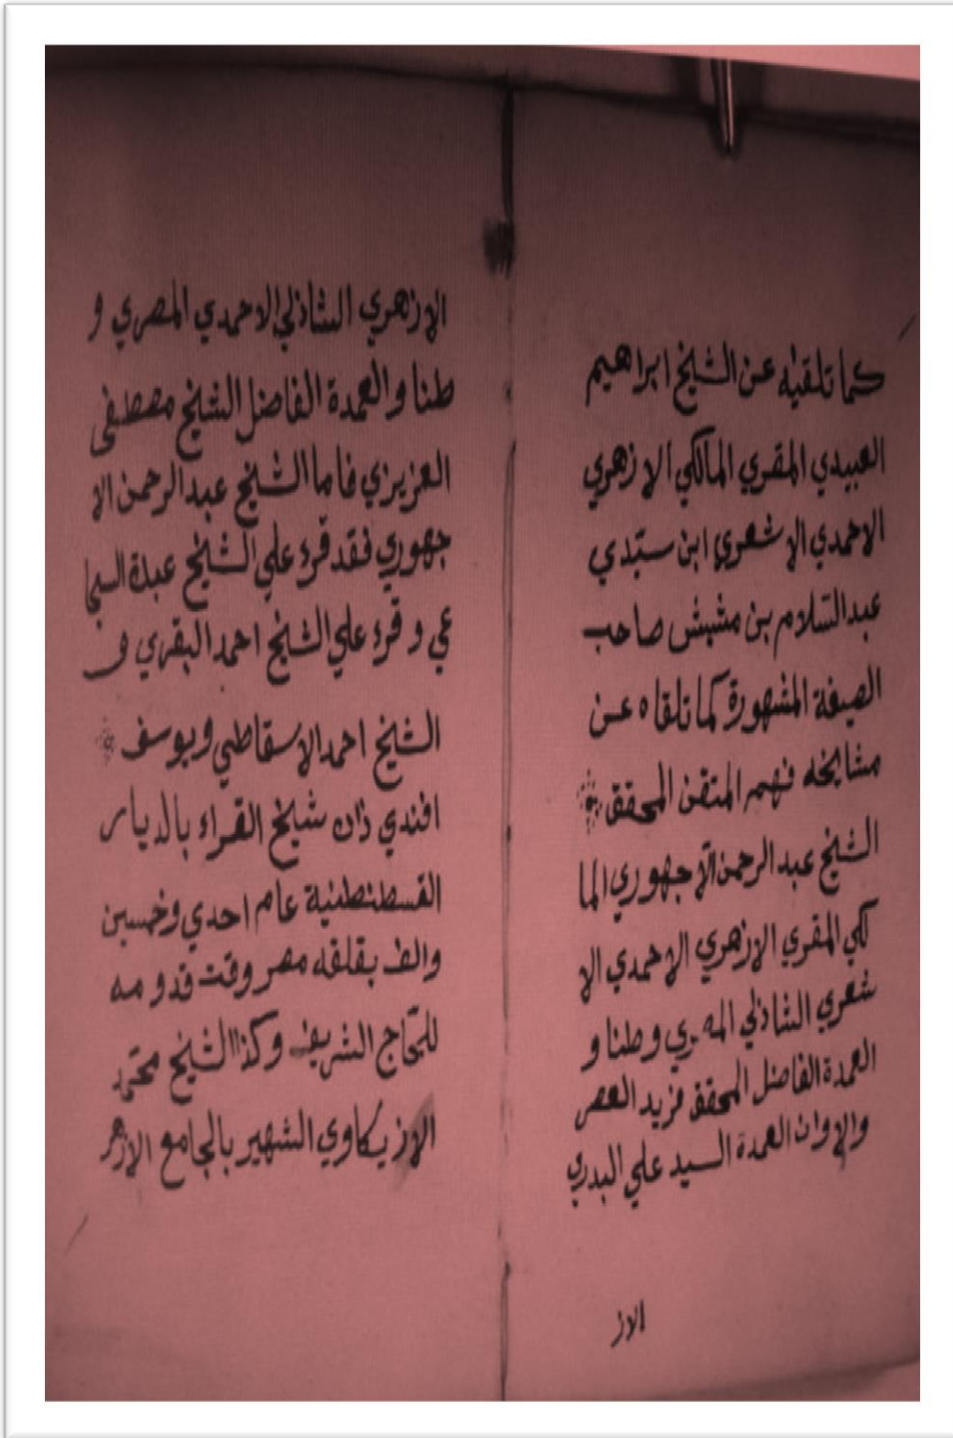 كما تلقيه عن الشيخ ابراهيم
العبيدي المقري المالكي الازهري
الاحمدي الاشعري ابن سيدي
عبد السلام بن مشيش صاحب
الصيغة المشهورة كما تلقاه عن
مشايخه فهم المتقن المحقق
الشيخ عبد الرحمن الاجهوري الما
لكي المقري الازهري الاحمدي الا
شعري الشاذلي المصري وطنا و
العمدة الفاضل المحقق فريد العصر
والاوان العمدة السيد علي البدري
الاز
الازهري الشاذلي الاحمدي المصري و
طنا والعمدة الفاضل الشيخ مصطفى
العزيزي فاما الشيخ عبد الرحمن الا
جهوري فقد قرء علي الشيخ عبدة السجا
عي و قرء علي الشيخ احمد البقري و
الشيخ احمد الاسقاطي ويوسف
افندي ذاده شيخ القراء بالديار
القسطنطنية عام احدي وخمسين
والف بقلقه مصر وقت قدومه
للحاج الشريف وكذا الشيخ محمد
الازبكاوي الشهير بالجامع الازهر